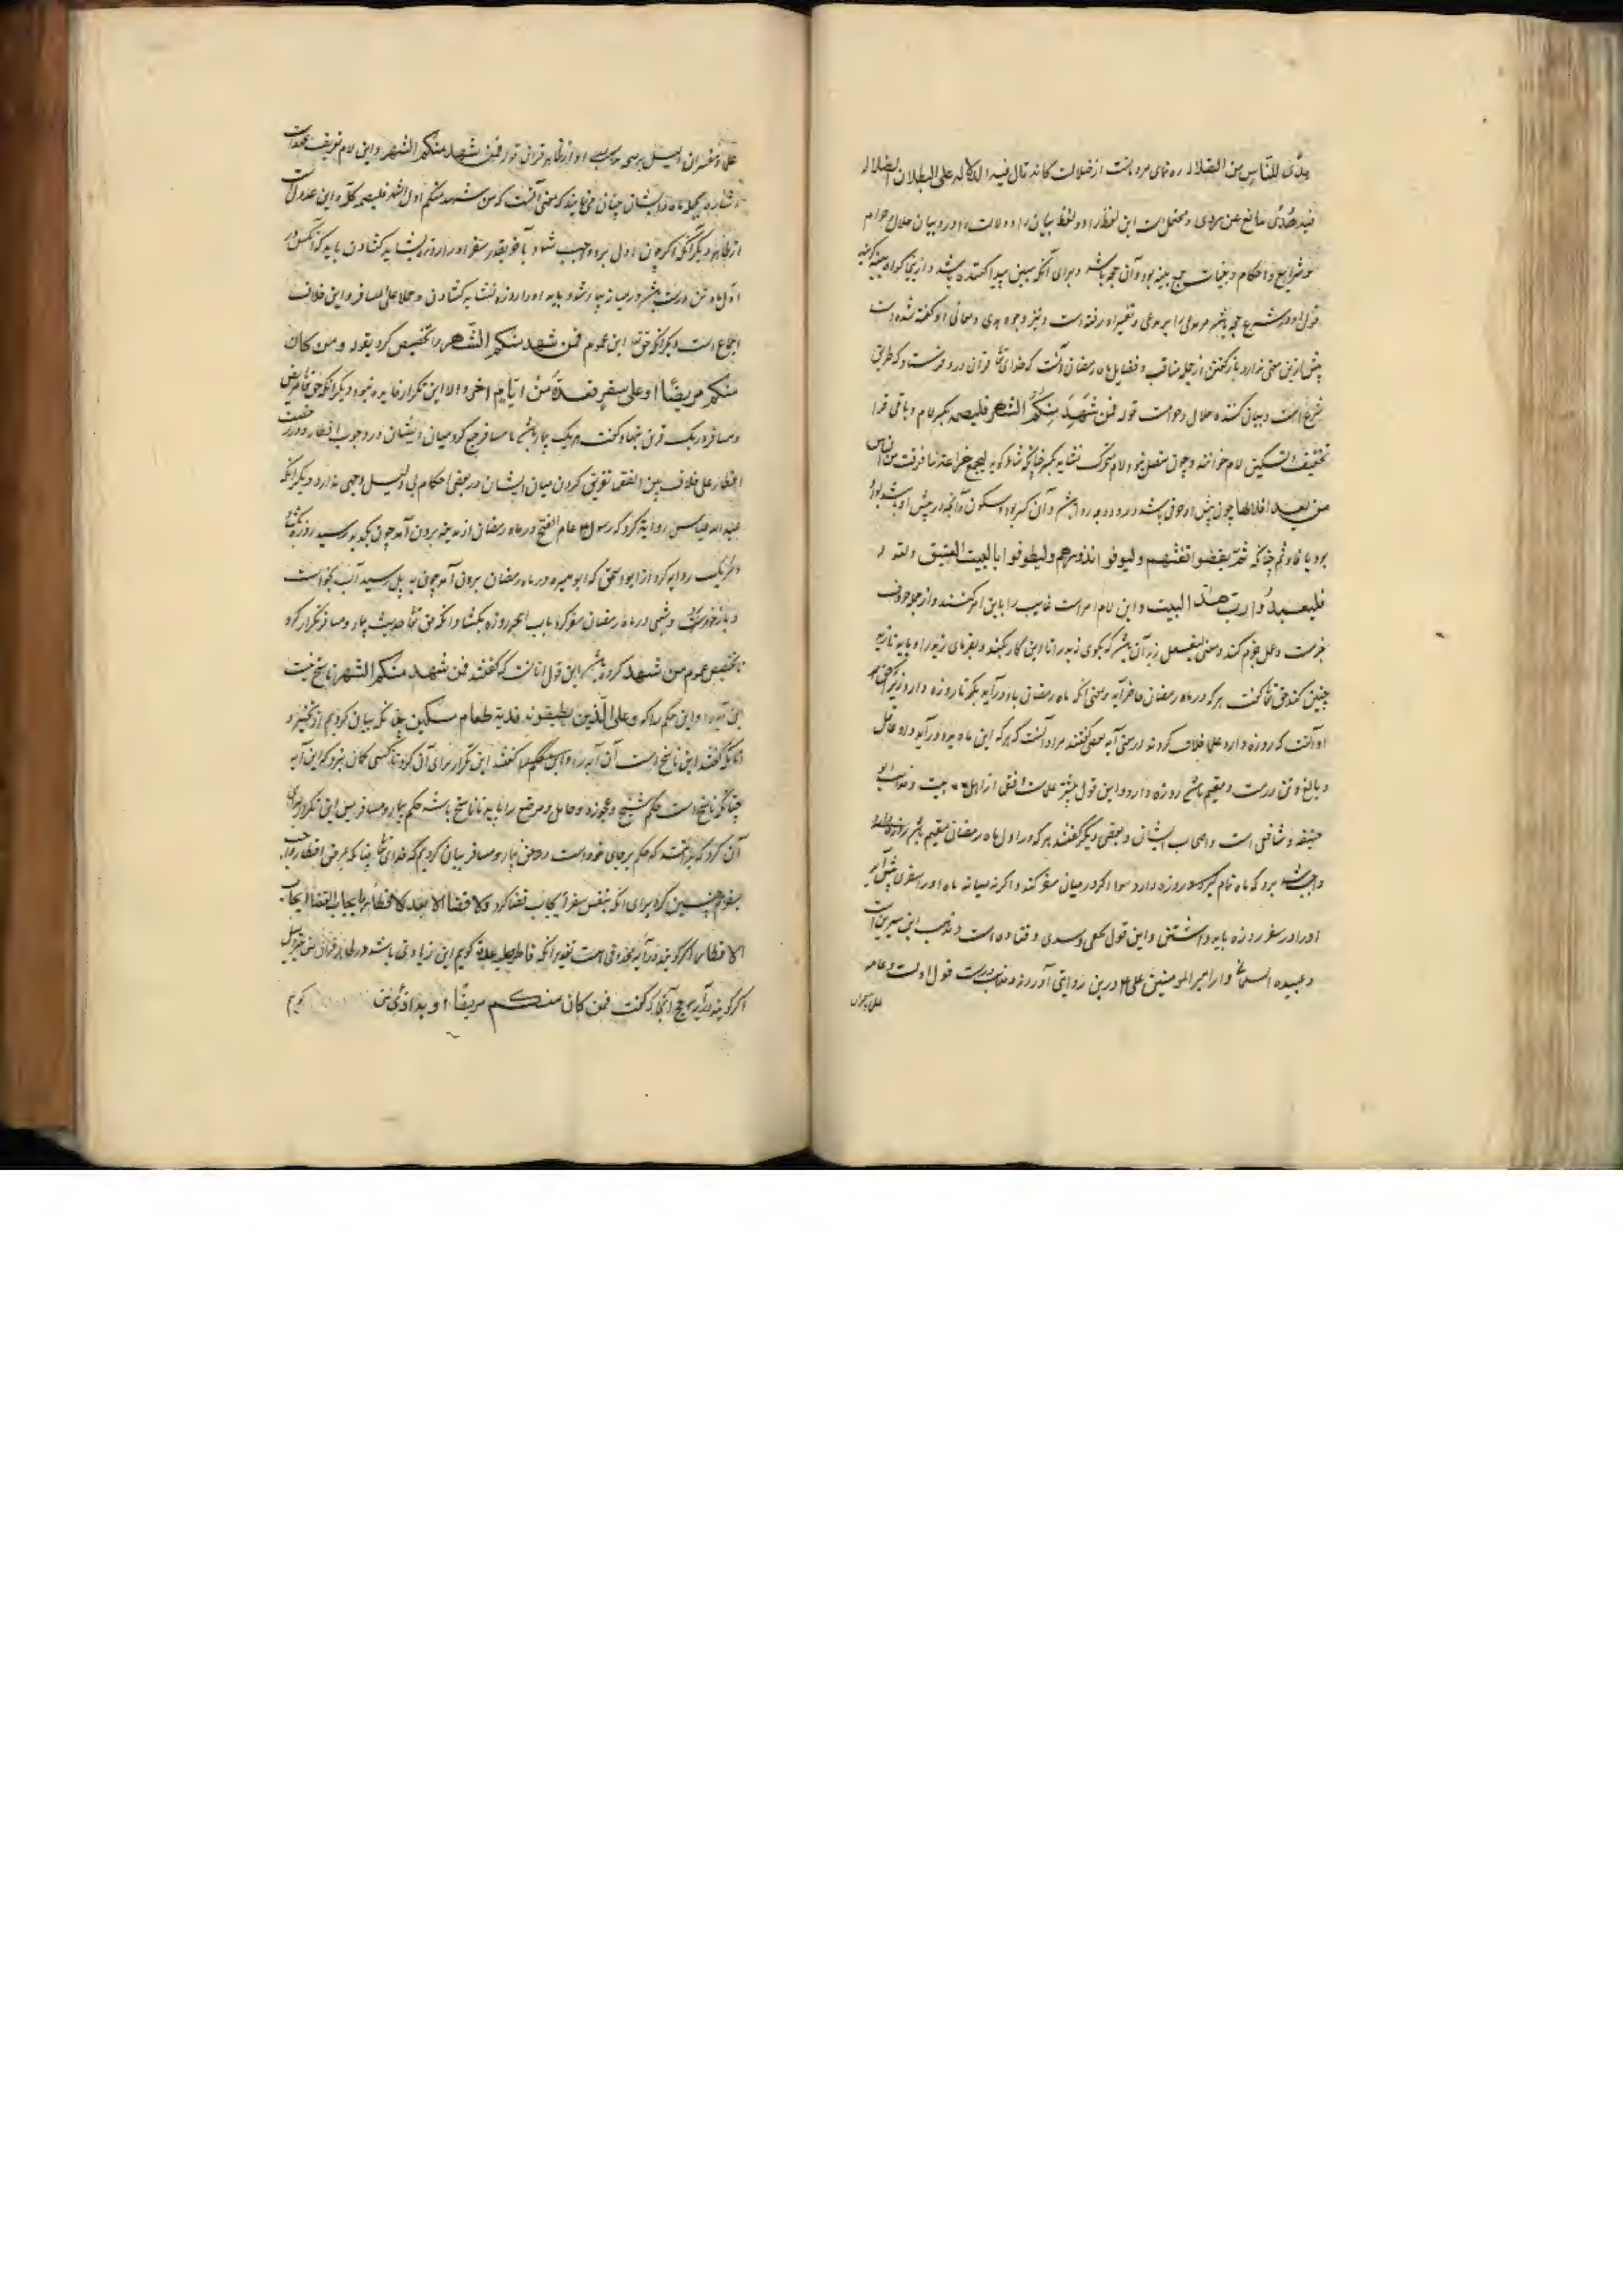 هدًی للنّاس من الضلالة ره نمای مردمانست از ضلالت کانه قال فیه الدلالة علی البطلان الضلالة
فیه هُدًی مانع عن بردی و محتملست این لفظ را دو لفظ بیان را و دلالت را و در و بیان حلال و حرام
و شرایع و احکام و بینات جمع بینه بود و آن حجه باشد و برای آنکه مبین پیدا کننده باشد و ازینجا گواه بینه گویند
قول او در شرع حجه باشد مر مدعی را بر مدعی و تفسیر او رفته است و نیز وجوه هدی و معانی او گفته شده است
پیش ازین معنی ندارد باز گفتن از جمله مناقب و فضایل ماه رمضان آنست که خدای تعالی قرآن درو فرستاد که طریق
شرع است و بیان کننده حلال و حرامست قوله فمن شَهِدَ مِنکُمُ الشهر فلیصمه بکسر لام و باقی قرا
تخفیف التسکین لام خوانند و چون متصل نبود لام متحرک نشاید مگر چنانکه شاعر گوید
من بعد افلالها چون پیش او حرفی باشد درو دو وجه روا باشد و آن کسر بود و سکون و آنچه در پیش او باشد واو
بود یا فا و ثم چنانکه ثمّ لیقضوا تفثهم و لیوفوا نذورهم و لیطوفوا بالبیت العتیق و لقوله
فلیعبدُوا ربّ هذا البیت و این لام امرست غایب را باین امر کنند و از جمله حروف
جزمست و عمل جزم کند و معنی لیفعل زید آن باشد که بگوی زید را تا این کار بکند و بفرمای زید را و باید تا زید
چنین کند حق تعالی گفت هرکه در ماه رمضان حاضر آید و معنی آنکه ماه رمضان باو درآید بگو تا روزه دارد
او آنست که روزه دارد علما خلاف کردند در معنی آیه بعضی گفتند مراد آنست که هرکه این ماه برو درآید و او عاقل
و بالغ و تن درست و مقیم باشد روزه دارد و این قول بیشتر علماست موافق از اهل بیت و مذهب ابو
حنیفه و شافعی است و اصحاب ایشان و بعضی دیگر گفتند هرکه در اول ماه رمضان مقیم باشد روزه دارد
واجب شد برو که ماه تمام گیرد و روزه دارد سوا اگر در میان سفر کند و اگر نه میانه ماه او را سفری پیش آید
او را در سفر روزه باید داشتن و این قول نخعی و سدی و قتاده است و مذهب ابن سیرین است
و عبیده السلمانی و از امیر المومنین علی درین روایتی آوردند و مذهب درست قول اولست و عامه
علما و مفسران
علما و مفسران دلیل بر صحه اول از ظاهر قرآن قوله فمن شهد منکم الشهر و این لام تعریف عهد است
اشاره بجمله ماه و ایشان چنان می‌نمایند که معنی آنست که من شهد منکم اول الشهر فلیصمه کله و این عدولست
از ظاهر و دیگر آنکه اگر چون اول برو واجب شود تا آخر بقدر سفر او را روزه نشاید گشادن باید که آنکس در
اول ماه تن درست باشد و در میانه بیمار شود باید او را روزه نشاید گشادن حملا علی المسافر و این خلاف
اجماع است و دیگر آنکه حق تعالی این عموم فمن شهد منکم الشهر را تخصیص کرد بقوله و من کان
منکم مریضًا او علی سفر فعدةٌ من ایّامٍ اخر و الا این تکرار فایده نبود و دیگر آنکه حق تعالی مریض
و مسافر در یک قرن نهاد و گفت هر یک بیمار باشد یا مسافر جمع کرد میان ایشان در وجوب افطار و رخصت
افطار علی خلاف بین الفقهاء تفریق کردن میان ایشان در بعضی احکام بی دلیل وجهی ندارد و دیگر آنکه
عبدالله عباس روایة کرد که رسول عام الفتح در ماه رمضان از مدینه بیرون آمد چون بکدید رسید روزه بگشاد
و شریک روایه کرد از ابو اسحق که ابو میسره در ماه رمضان بیرون آمد چون به پل رسید آب بخواست
و باز خورد و شعبی در ماه رمضان سفر کرد بباب الجسر روزه بگشاد و آنکه حق تعالی حدیث بیمار و مسافر تکرار کرد
تا تخصیص عموم من شهد کرده باشد این قول آنانست که گفتند فمن شهد منکم الشهر ناسخ نیست
این آیه را و این حکم را که و علی الّذین یطیقونه فدیة طعام مسکین چنانکه بیان کردیم از تخییر و
آنانکه گفتند این ناسخ است آن آیه را و این حکم را گفتند این تکرار برای آن کرد تا کسی گمان نبرد که این آیه
چنانکه ناسخ است حکم شیخ و عجوزه و حامل و مرضع را باید تا ناسخ باشد حکم بیمار و مسافر پس این تکرار برای
آن کرد که بدانند که حکم برجای خود است در حق بیمار و مسافر بیان کردیم که خدای تعالی چنانکه بمرض افطار واجب
بسفر همچنین کرد برای آنکه بنفس سفر ایجاب قضا کرد و لا قضاء الا بعد الافطار فایجاب القضاء ایجاب
الافطار اگر گویند در آیه محذوفی است تقدیر آنکه فافطر فعلیه عدة گوییم این زیادتی باشد در ظاهر قرآن بی دلیل
اگر گویند در آیه حج آنجا که گفت فمن کان منکم مریضًا او به اذًی من گوییم